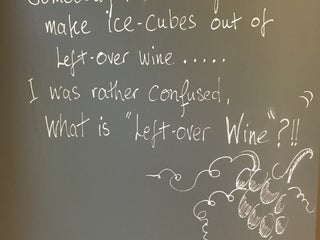 make ice-cubes out of
Left-over wine .....
I was rather confused,
What is "Left-over Wine"?!!